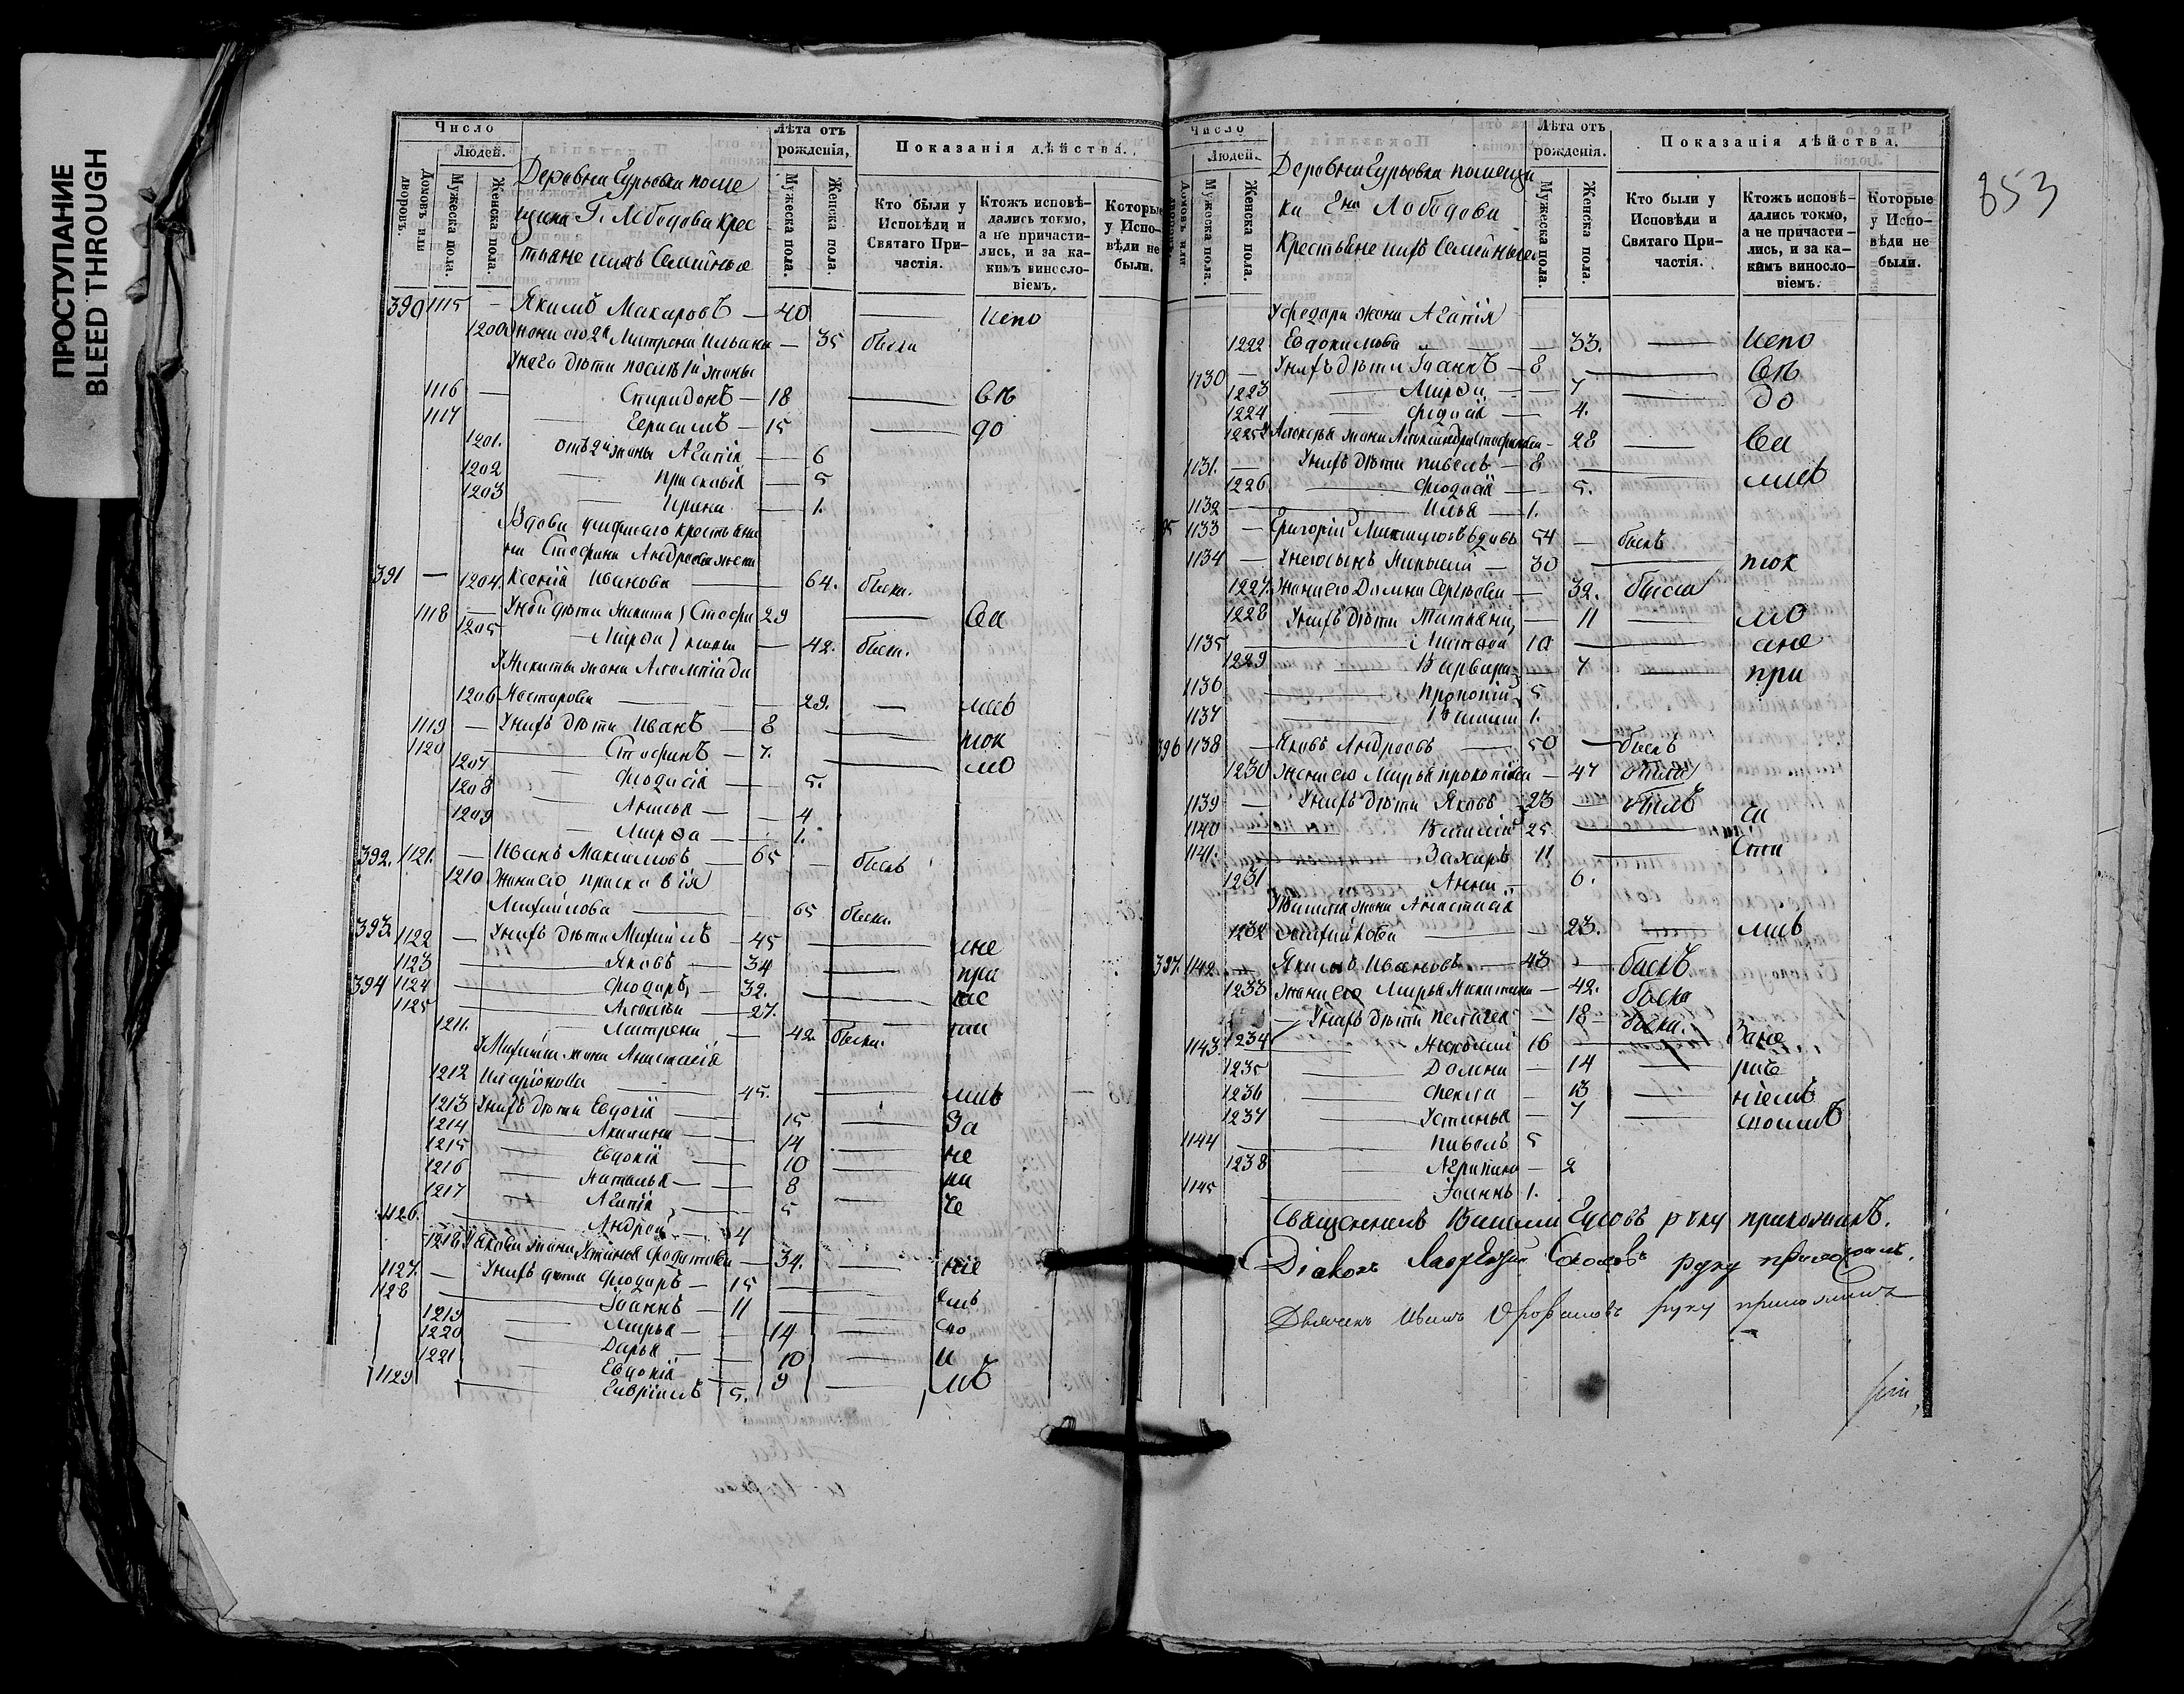 ПРОСТУПАНИЕ
BLEED THROUGH
853
Число
Людей.
Домовъ или дворовъ.
Мужеска пола.
Женска пола.
Деревни Гурьевки поме
щика Г. Лободова Крес
тьяне ихъ Семейные
Лѣта отъ рожденія,
Мужеска пола.
Женска пола.
Показанія дѣйства.
Кто были у Исповѣди и Святаго Причастія.
Ктожъ исповѣдались токмо, а не причастились, и за какимъ винословіемъ.
Которые у Исповѣди не были.
390 1115 — Якимъ Макаровъ — 40 — испо
1200 Жена его 2я Матрена Ильина — 35 была
У него дѣти послѣ 1й жены
1116 — Спиридонъ — 18 — вѣ
1117 Герасимъ — 15 — до
1201. отъ 2й жены Агапія — 6
1202 Прасковія — 5
1203 Ирина — 1.
Вдова крестьяни
на Стефана Андреева жена
391 — 1204. Ксенія Иванова — 64. была.
1118 — У ней дѣти Никита Стефа 29 — ва
1205 — Марфа — 42. была.
У Никиты жена Олимпіада
1206 Нестерова — 29. — мъ
1119 — У нихъ дѣти Иванъ — 8 — ток
1120 — Стефанъ — 7. — мо
1207 Феодосія — 5.
1208 — 4
1209 Марфа — 1.
392. 1121. — Иванъ Максимовъ — 65 — былъ
1210 Жена его Прасковія
Михайлова — 65 была.
393. 1122 — У нихъ дѣти Михаилъ — 45 — не
1123 — Яковъ — 34 — при
394 1124 — Феодоръ, — 32. — час
1125 — Алексѣй — 27. — ти
1211. Матрена — 42. была.
У Михаила жена Анастасія
1212 Иларіонова — 45. — мъ
1213 У нихъ дѣти Евдокія — 15 — За
1214 Акилина — 14 — не
1215 Евдокія — 10 — ра
1216 Наталья — 8 — че
1217 Агапія — 5
1126. Андрей — 4
1218 У Якова жена Устинья Федотова — 34. — ніе
1127. — У нихъ дѣти Феодоръ — 15
1128 Іоаннъ — 11 — емъ
1219 Марья — 14 — сво
1220 Дарья — 10 — и
1221 Евдокія — 9 — мъ
1129 Гавріилъ 5.
Число
Людей.
Домовъ или дворовъ.
Мужеска пола.
Женска пола.
Деревни Гурьевки помещи
ка Гна Лободова
Крестьяне ихъ Семейные
Лѣта отъ рожденія.
Мужеска пола.
Женска пола.
Показанія дѣйства.
Кто были у Исповѣди и Святаго Причастія.
Ктожъ исповѣдались токмо, а не причастились, и за какимъ винословіемъ.
Которые у Исповѣди не были.
У Феодора жена Агапія
1222 Евдокимова — 33. — испо
1130 — У нихъ дѣти Іоаннъ — 8 — вѣ
1223 — Марфа — 7 — до
1224 — Феодосія — 4.
1225 У Алексѣя жена Александра Стефанова — 28 — ва
1131. — У нихъ дѣти Павелъ — 8
1226 — Феодосія — 5. — мъ
1132 — Илья — 1.
95 1133 — Григорій Максимовъ вдовъ 54 — былъ
1134 — У него сынъ 30 — ток
1227. Жена его Домна Сергѣева — 32. была
1228 У нихъ дѣти Татьяна, — 11 — мо
1135 — 10 — ане
1229 — Варвара — 7 — при
1136 — Прокопій 5
1137 — Василій 1.
396 1138 — Яковъ Андреевъ — 50 — былъ
1230 Жена его Марья Прокопіева — 47 была
1139 — У нихъ дѣти Яковъ — 23 — былъ ча
1140 — Василій 25
1141. — Захаръ 11 — сти
1231 — Анна — 6.
У Василія жена Анастасія
1232 — 23. — мъ
397. 1142 — Якимъ Ивановъ — 43 — былъ
1233 Жена его Марья Никитина — 42. была
— У нихъ дѣти Пелагея — 18 — была.
1143. 1234 — Николай 16 — За не
1235 — Домна — 14 — раче
1236 — Фекла — 13 ніемъ
1237 — Устинья — 7 — своимъ
1144 — Павелъ 5
1238 — Агрипина — 2
1145 — Іоаннъ 1.
Священникъ Василій Гусовъ руку приложилъ.
Діаконъ руку приложилъ.
Дьячекъ Иванъ руку приложилъ